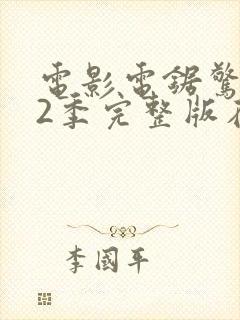 電影電鋸驚
2季完整版在
李國平